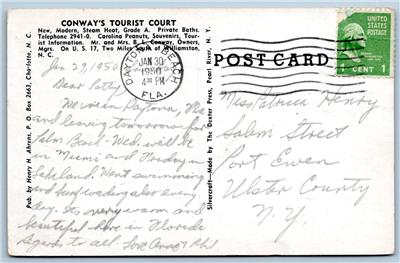 CONWAY'S TOURIST COURT
New, Modern, Steam Heat, Grade A. Private Baths.
Telephone 2941-0. Carolina Peanuts, Souvenirs, Tour-
ist Information. Mr. and Mrs. B. L. Conway, Owners,
Mgrs. On U. S. 17, Two Miles South of Williamston,
N. C.
Jan 29, 1950
Dear Patty
We're in Daytona, Fla
and leaving tomorrow for
Palm Bach - Wed. will be
in Miami and Friday in
Lakeland. Went swimming
and surf wading also every
day. Its very warm and
beautiful here in Florida
Regards to all. Love Anne & Phil
Pub. by Henry H. Ahrens, P. O. Box 2663, Charlotte, N. C.
Silvercraft—Made by The Dexter Press, Pearl River, N. Y.
DAYTONA BEACH
JAN 30
4 PM
1950
FLA.
POST CARD
UNITED STATES
POSTAGE
1 CENT 1
Miss Patricia Henry
Salem Street
Port Ewen
Ulster County
N. Y.